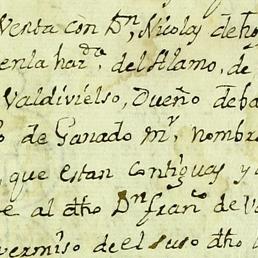 Venta con Dn, Nicolas de
en la hazda, del Alamo, de
Valdivielso, Dueño de
de Ganado mr, nombr
, que estan contiguas y
e al dho Dn franco de V
permiso de el suso dho